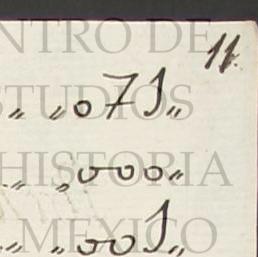 11.
„ „071„
„ „000„
„ „001„
NTRO DE
STUDIOS
HISTORIA
MEXICO